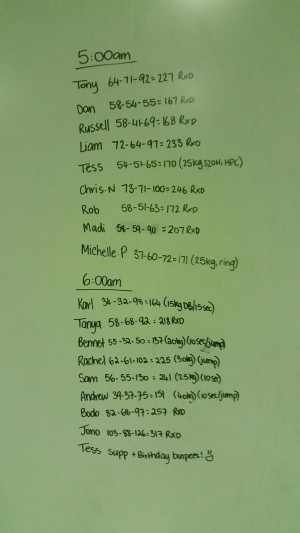 5:00am
Tony 64-71-92=227 RxD
Dan 58-54-55=167 RxD
Russell 58-41-69=168 RxD
Liam 72-64-97=233 RxD
Tess 54-51-65=170 (25kg SDH, HPC)
Chris.N 73-71-100=246 RxD
Rob 58-51-63=172 RxD
Madi 58-59-90=207 RxD
Michelle.P 37-60-72=171 (25kg, ring)
6:00am
Karl 34-32-98=164 (15kg DB/15sec)
Tanya 58-68-92=218 RxD
Bennet 55-32-50=137 (20kg) (10sec/jump)
Rachel 62-61-102=225 (30kg) (jump)
Sam 56-55-130=241 (25kg) (10sec)
Andrew 39-37-75=151 (40kg) (10sec/jump)
Bodo 82-68-97=257 RxD
Jono 103-88-126=317 RxD
Tess Supp + Birthday burpees!